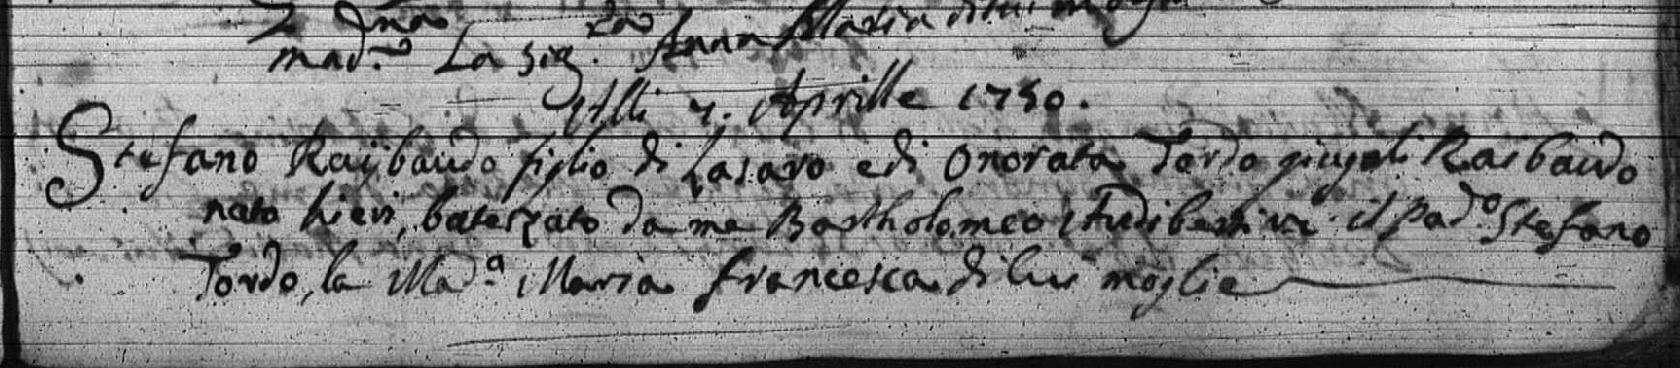 mad.ª La sig.ra Anna Maria di lui moglie
Alli 7. Aprille 1750.
Stefano Raijbaudo figlio di Lasaro e di Onorata Tordo giugali Raibaudo
nato hieri, batezzato da me Bartholomeo Audiberti vi: il Pad.º Stefano
Tordo, la Mad.ª Maria Francesca di lui moglie